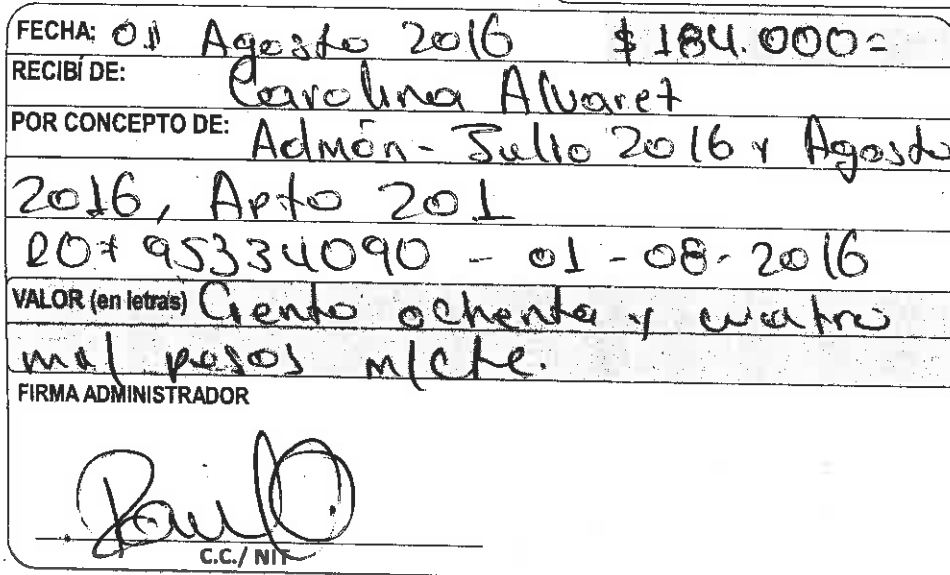 FECHA: 01 Agosto 2016 $ 184.000=
RECIBÍ DE: Carolina Alvarez
POR CONCEPTO DE: Admón - Julio 2016 y Agosto
2016, Apto 201
95334090 - 01-08-2016
VALOR (en letras) Ciento ochenta y cuatro
mil pesos m/cte.
FIRMA ADMINISTRADOR
C.C./ NIT